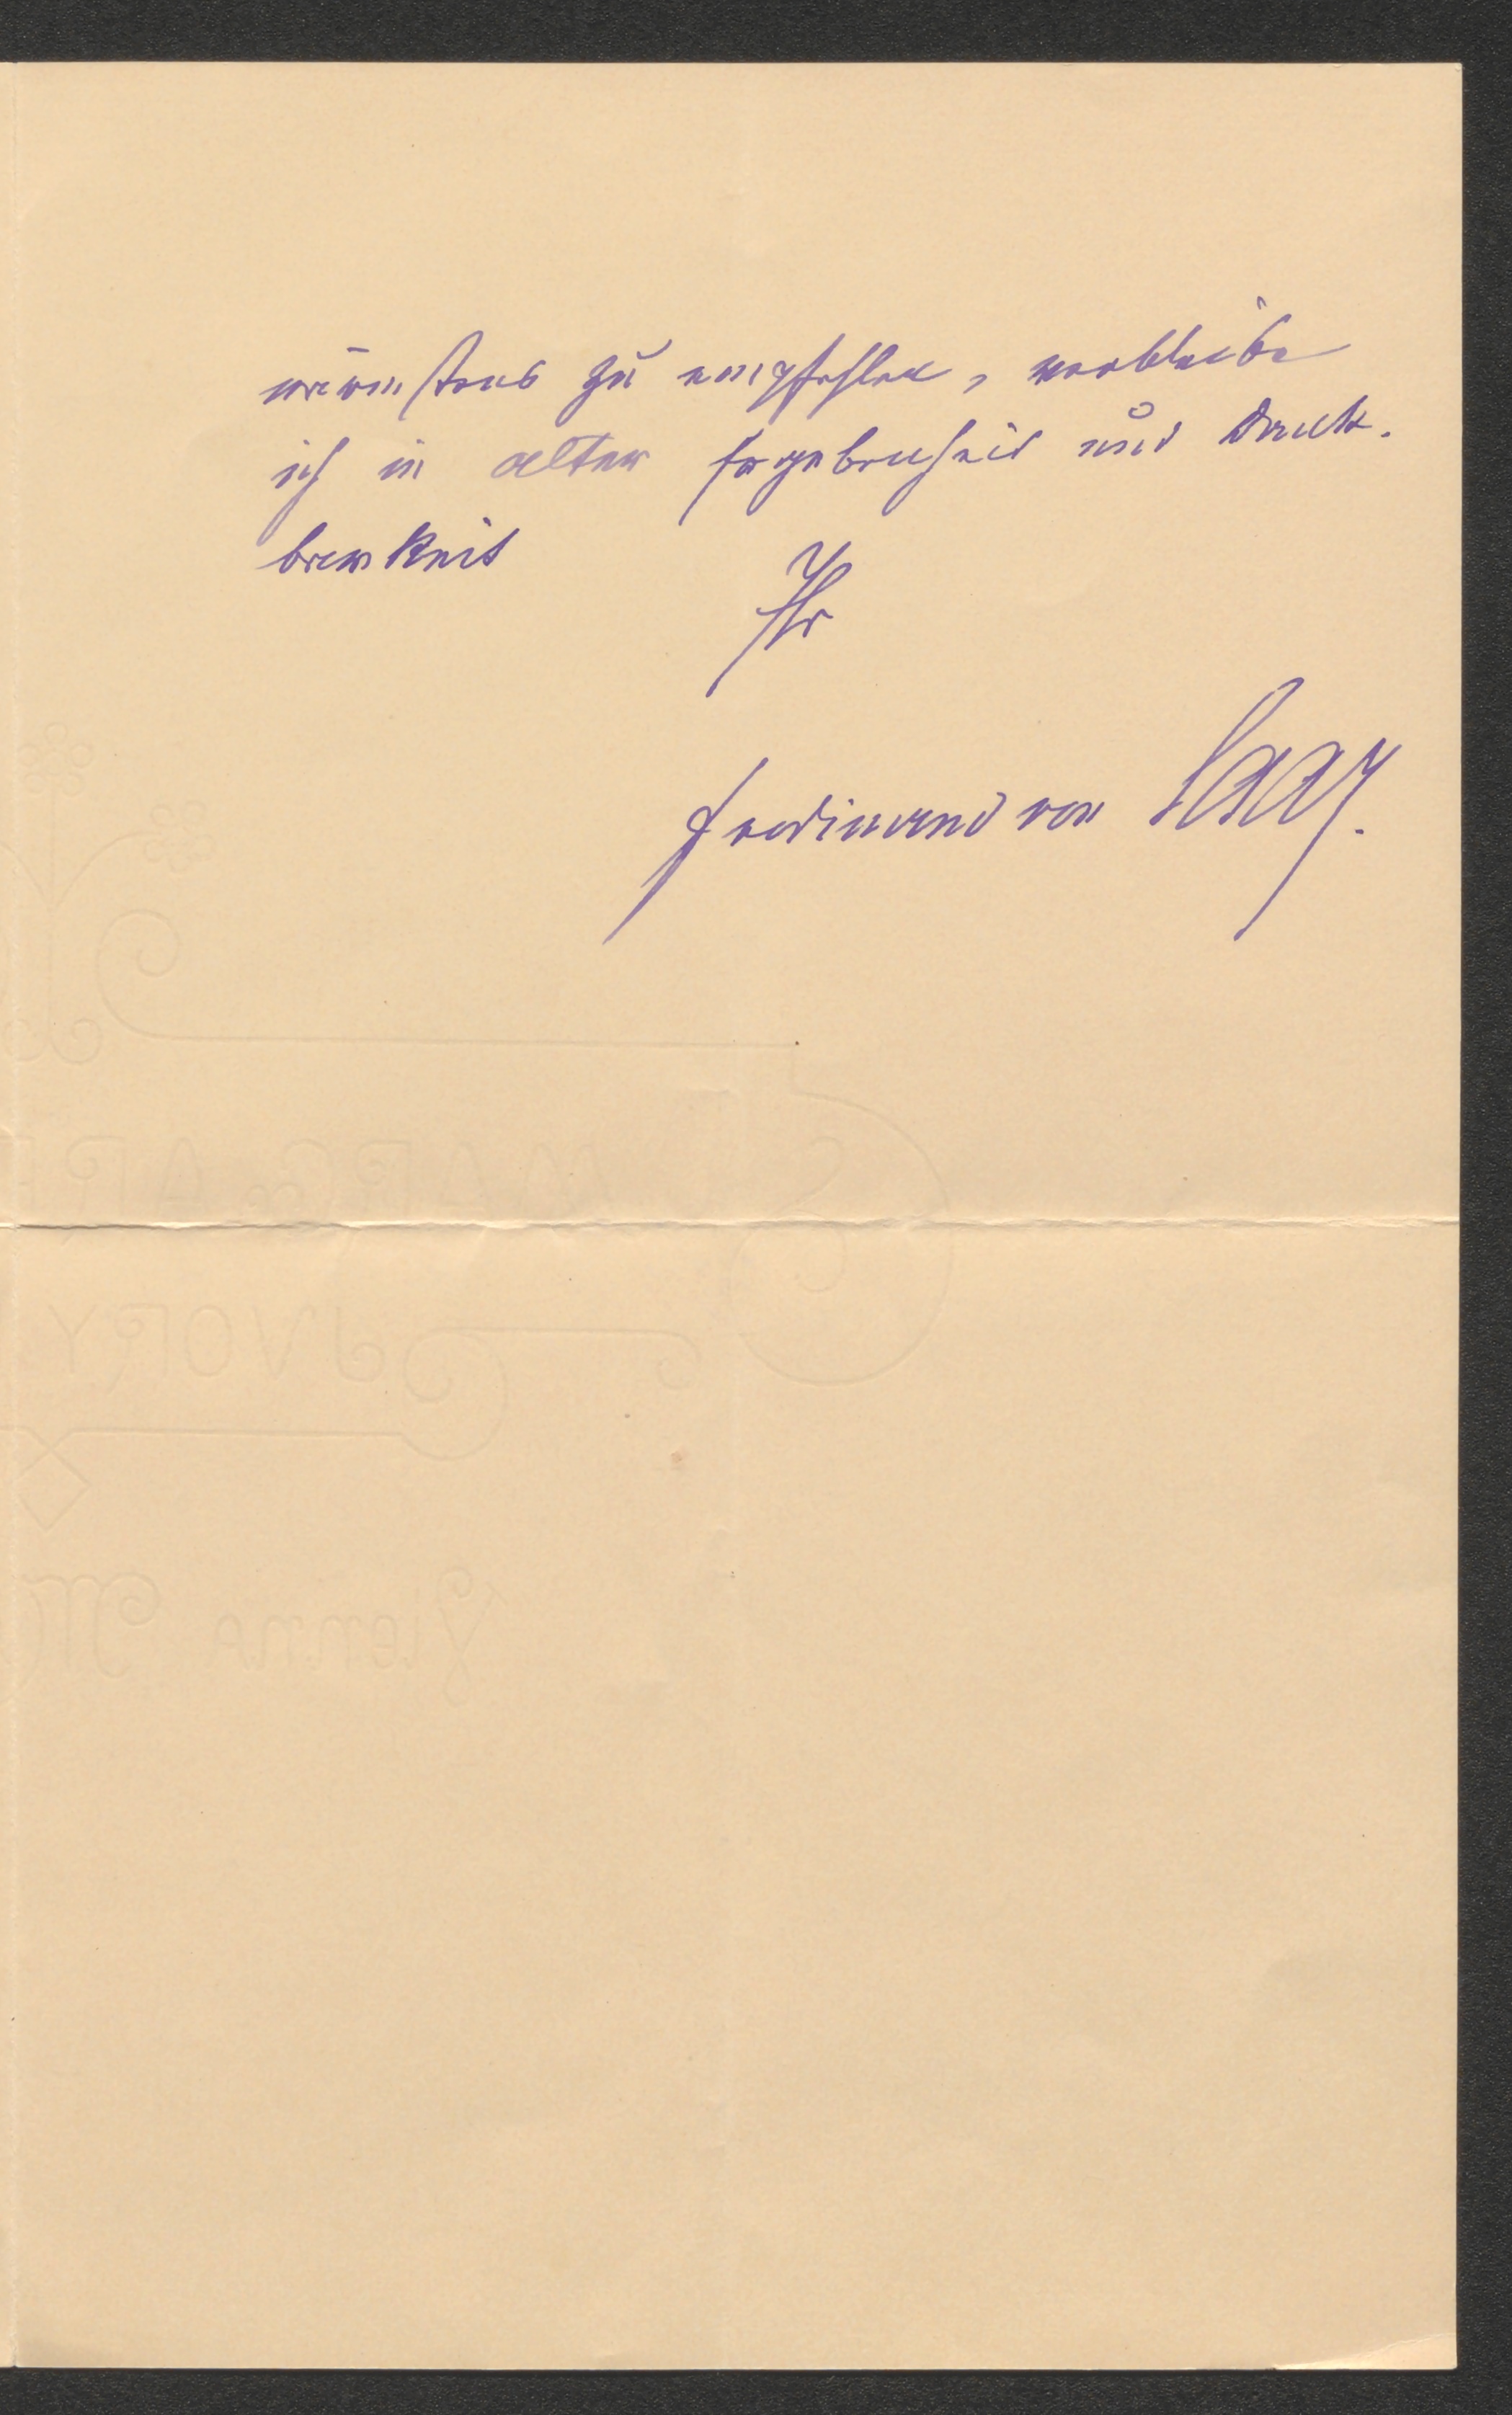 wärmstens zu empfehlen, verbleibe
ich in alter Ergebenheit und Dank-
barkeit
Ihr
Ferdinand von Saar.
MARG
JVORY
Vienna M